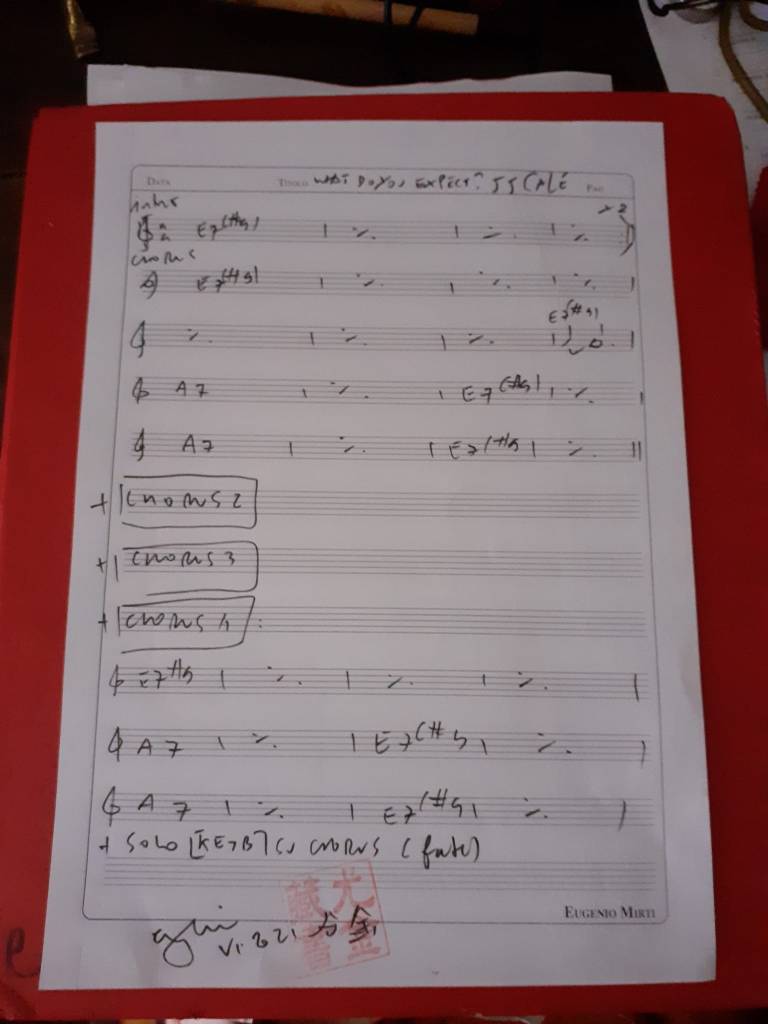 DATA TITOLO WHAT DO YOU EXPECT? JJ CALE PAG
x2
E7(#9) | ٪ | ٪ | ٪
CHORUS
E7(#9) | ٪ | ٪ | ٪ |
E7(#9)
٪ | ٪ | ٪ | |
A7 | ٪ | E7(#9) | ٪ |
A7 | ٪ | E7(#9) | ٪ ||
+ CHORUS 2
+ CHORUS 3
+ CHORUS 4
E7#9 | ٪ | ٪ | ٪ |
A7 | ٪ | E7(#9) | ٪ |
A7 | ٪ | E7(#9) | ٪ |
+ SOLO [KEYB] SU CHORUS (fade)
EUGENIO MIRTI
VI. 2021